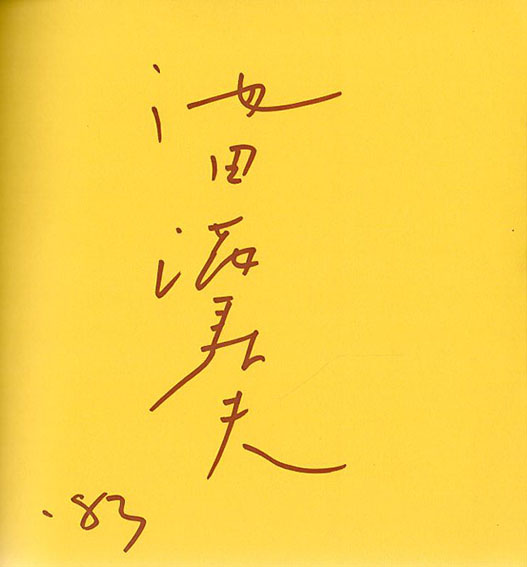 池田満寿夫
'83